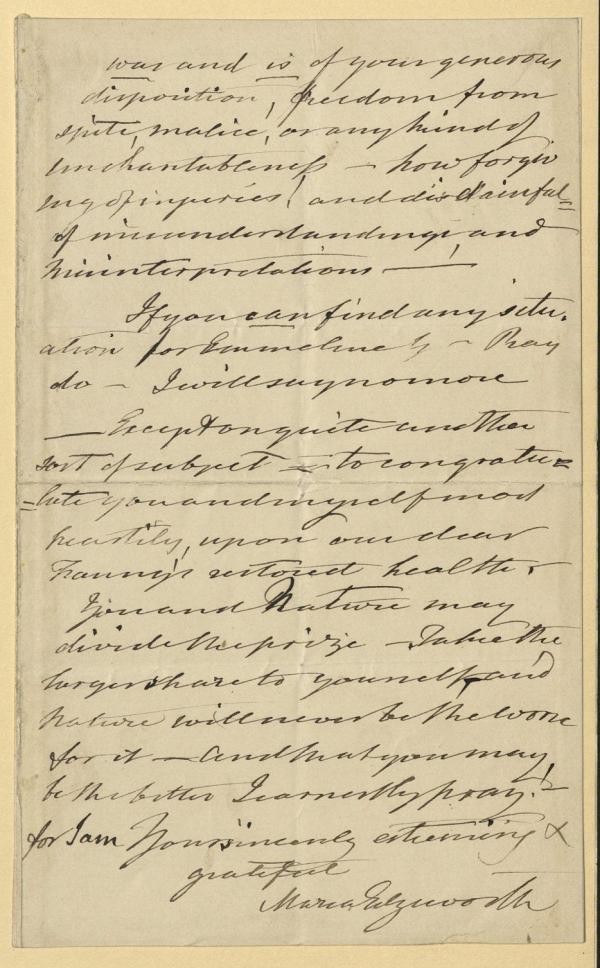 was and is of your generous
disposition, freedom from
spite, malice, or any kind of
uncharitableness – how forgiv
ing of injuries! and disdainful=
of misunderstandings, and
misinterpretations —!
If you can find any situ.
ation for Emmeline – Pray
do – I will say no more
— Except on quite another
sort of subject = to congratu=
=late you and myself most
heartily, upon our dear
Fanny's restored health.
You and Nature may
divide the prize – Take the
larger share to yourself, and
Nature will never be the worse
for it – and that you may
be the better I earnestly pray! –
for I am Yours sincerely esteeming &
grateful
Maria Edgeworth